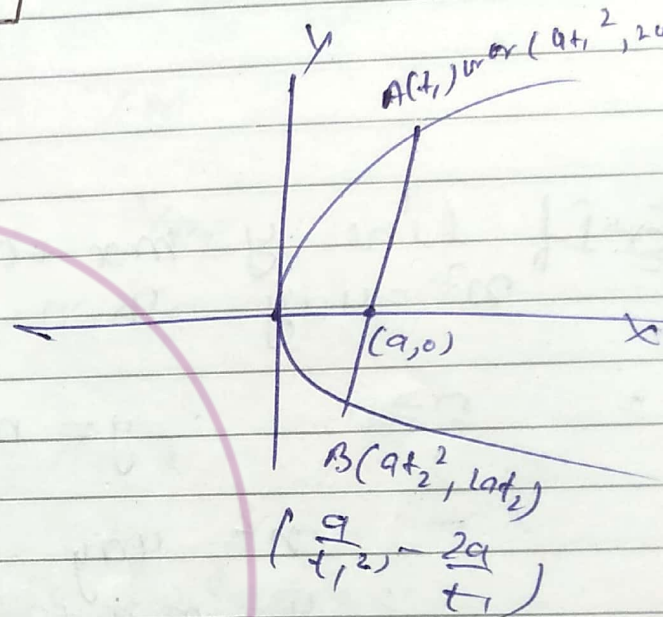 y
A(t₁) or (at₁², 2a
(a,0)
x
B(at₂², 2at₂)
(a/t₁², -2a/t₁)